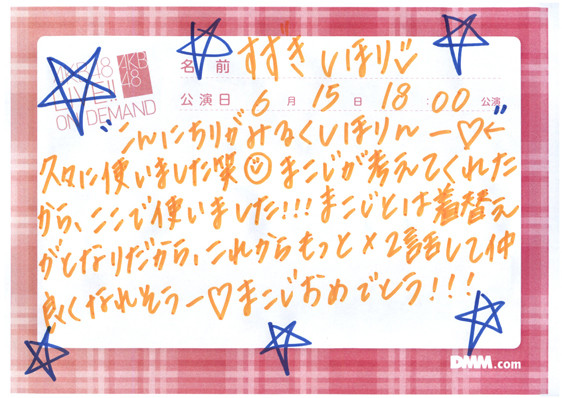 AKB48
LIVE!!
ON DEMAND
AKB
48
名前 すずきしほり
公演日 6月15日 18:00公演
"こんにちりがみるくしほりんー♡←"
久々に使いました笑☺まこじが考えてくれた
から、ここで使いました!!!まこじとは着替え
がとなりだから、これからもっと×2話して仲
良くなれそうー♡まこじおめでとう!!!
DMM.com